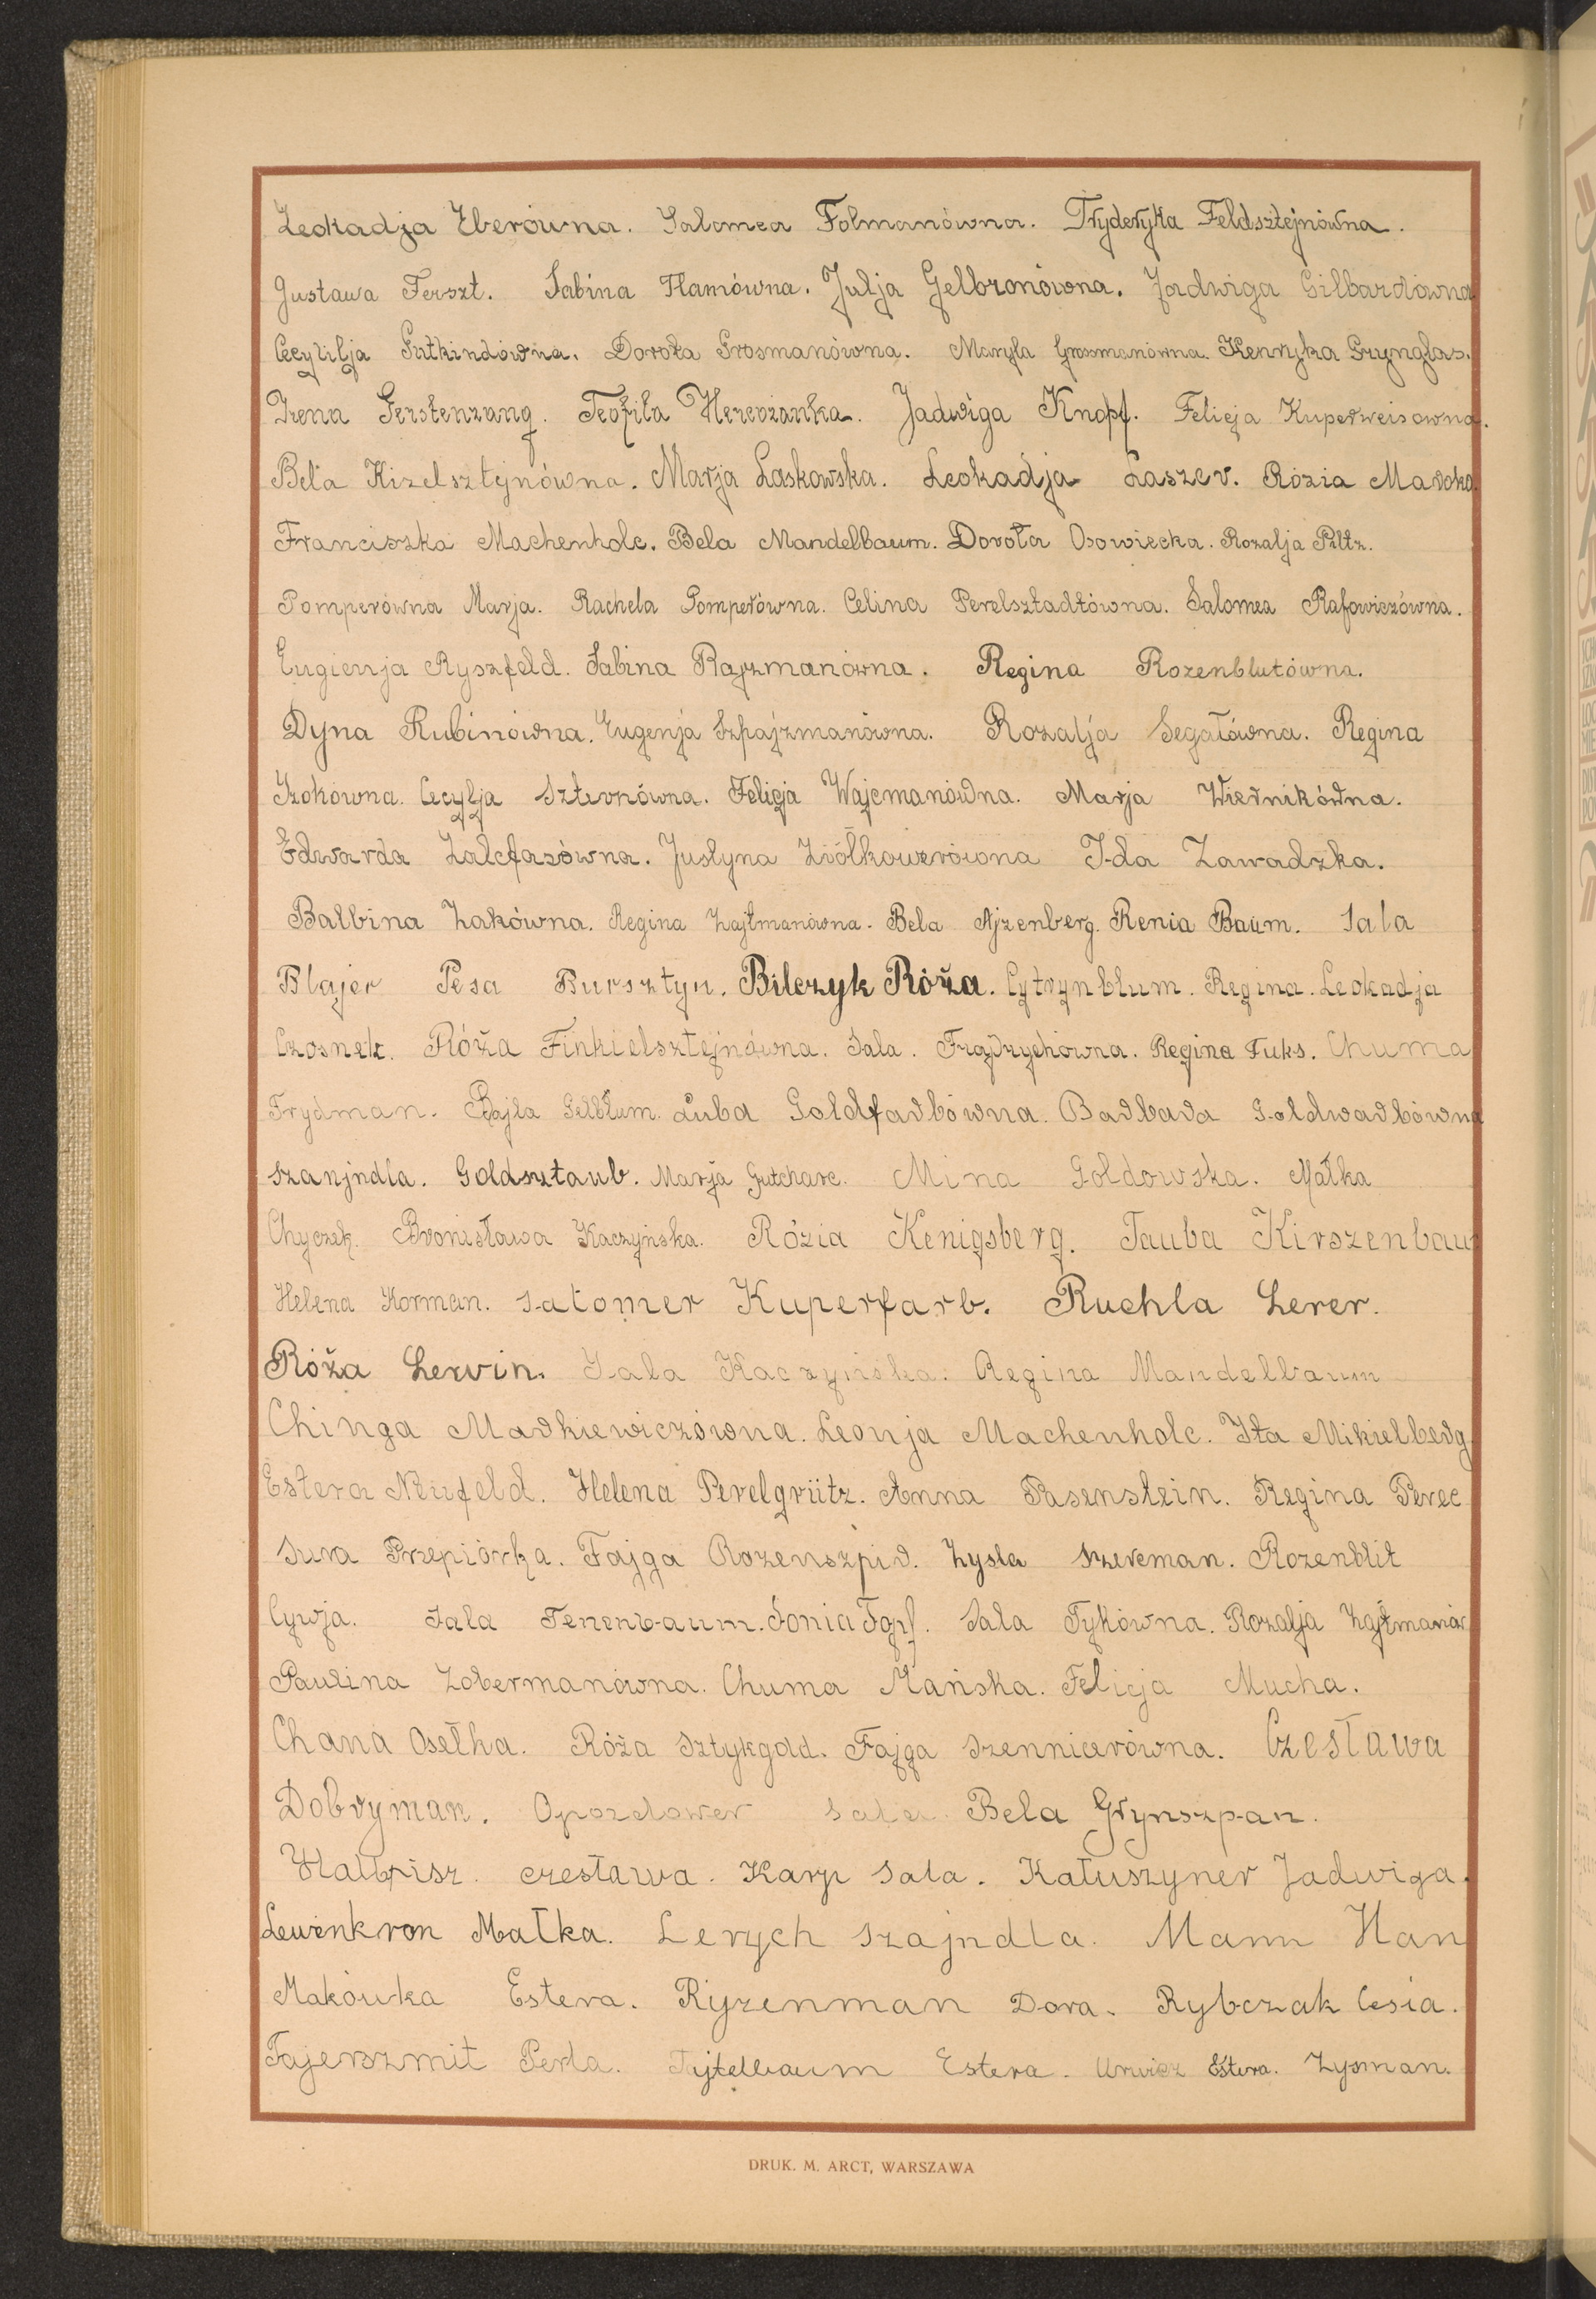 Leokadja Eberówna. Salomea Folmanówna. Fryderyka Feldsztejnówna.
Gustawa Ferszt. Sabina Flamówna. Julja Gelbronówna. Jadwiga Gilbardówna
Cecylja Gutkindówna. Dorota Grosmanówna. Maryla Grosmanówna. Henryka Grynglas.
Irena Gerstenzang. Teofila Hercożanka. Jadwiga Knopf. Felicja Kuperweisówna.
Bela Kizelsztejnówna. Marja Laskowska. Leokadja Laszer. Rózia Maroko.
Franciszka Machenholc. Bela Mandelbaum. Dorota Osowiecka. Rozalja Peltz.
Pomperówna Marja. Rachela Pomperówna. Celina Perelsztadtówna. Salomea Rafowiczówna.
Eugienja Ryszfeld. Sabina Rajzmanówna. Regina Rozenblutówna.
Dyna Rubinówna. Eugenja Szpajzmanówna. Rozalja Segałówna. Regina
Szokówna. Cecylja Szternówna. Felicja Wajcmanówna. Marja Wiernikówna.
Edwarda Zalcfasówna. Justyna Ziółkowerówna Ida Zawadzka.
Balbina Żakówna. Regina Zajtmanówna. Bela Ajzenberg. Renia Baum. Sala
Blajer Pesa Bursztyn. Bilczyk Róża. Cytrynblum. Regina. Leokadja
Czosnek. Róża Finkielsztejnówna. Sala. Frajdrychówna. Regina Fuks. Chuma
Frydman. Bajla Gelblum. Luba Goldfarbówna. Barbara Goldwarbówna
Szanjndla. Goldsztaub. Marja Gutcharc. Mina Goldowska. Małka
Chyczek. Bronisława Kaczyńska. Rózia Kenigsberg. Tauba Kirszenbaum
Helena Korman. Salomer Kuperfarb. Ruchla Lerer.
Róża Lewin. Sala Kaczyńska. Regina Mandelbaum
Chinga Markiewiczówna. Leonja Machenholc. Ita Mikielberg
Estera Neufeld. Helena Perelgrütz. Anna Pasenstein. Regina Perec
Sura Przepiórka. Fajga Rozenszpir. Zysla Szereman. Rozenblit
Cywja. Sala Tenenbaum. Sonia Topf. Sala Tykówna. Rozalja Zajtmanów
Paulina Zobermanówna. Chuma Mańska. Felicja Mucha.
Chana Osełka. Róża Sztykgold. Fajga Szennicerówna. Czesława
Dobryman. Opozdower Sala. Bela Grynszpan.
Halbrisz. Czesława. Karp Sala. Kałuszyner Jadwiga.
Lewenkron Małka. Lerych Szajndla. Mann Han
Makówka Estera. Ryzenman Dora. Rybczak Cesia.
Fajerszmit Perla. Tajtelbaum Estera. Urwicz Estera. Zysman.
DRUK. M. ARCT, WARSZAWA